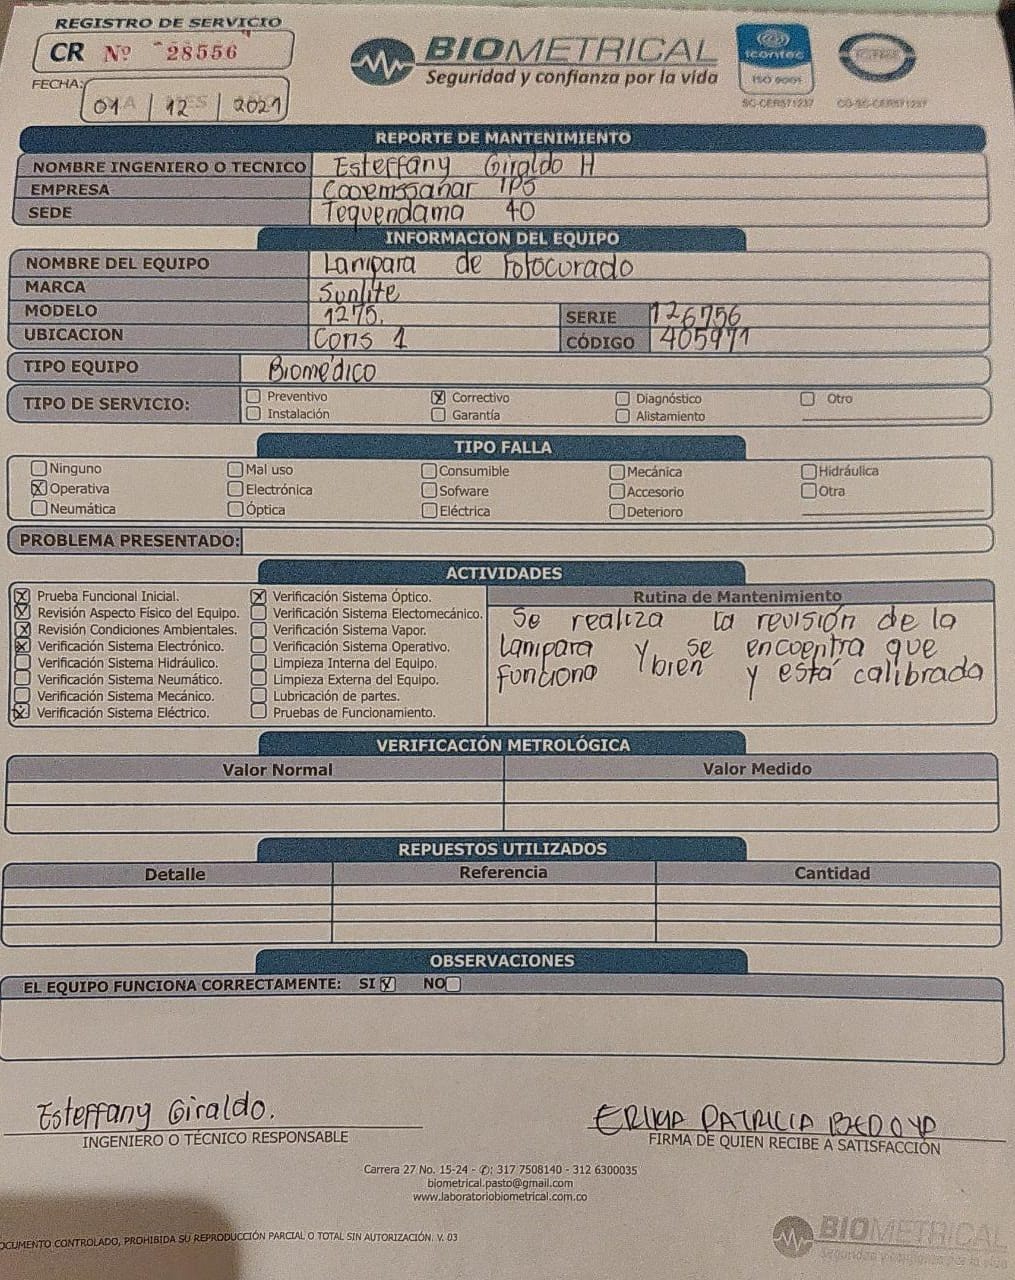 REGISTRO DE SERVICIO
CR Nº 28556
BIOMETRICAL
Seguridad y confianza por la vida
icontec
ISO 9001
SC-CER571237
CO-SC-CER571237
FECHA:
01 | 12 | 2021
REPORTE DE MANTENIMIENTO
NOMBRE INGENIERO O TECNICO Esteffany Giraldo H
EMPRESA Cooemssanar IPS
SEDE Tequendama 40
INFORMACION DEL EQUIPO
NOMBRE DEL EQUIPO Lampara de Fotocurado
MARCA Sunlite
MODELO 1275. SERIE 126756
UBICACION Cons 1 CÓDIGO 405971
TIPO EQUIPO Biomédico
TIPO DE SERVICIO: Preventivo Correctivo Diagnóstico Otro
Instalación Garantía Alistamiento
TIPO FALLA
Ninguno Mal uso Consumible Mecánica Hidráulica
Operativa Electrónica Sofware Accesorio Otra
Neumática Óptica Eléctrica Deterioro
PROBLEMA PRESENTADO:
ACTIVIDADES
Prueba Funcional Inicial.
Revisión Aspecto Físico del Equipo.
Revisión Condiciones Ambientales.
Verificación Sistema Electrónico.
Verificación Sistema Hidráulico.
Verificación Sistema Neumático.
Verificación Sistema Mecánico.
Verificación Sistema Eléctrico.
Verificación Sistema Óptico.
Verificación Sistema Electomecánico.
Verificación Sistema Vapor.
Verificación Sistema Operativo.
Limpieza Interna del Equipo.
Limpieza Externa del Equipo.
Lubricación de partes.
Pruebas de Funcionamiento.
Rutina de Mantenimiento
Se realiza la revisión de la
lampara y se encuentra que
funciona bien y está calibrada
VERIFICACIÓN METROLÓGICA
Valor Normal Valor Medido
REPUESTOS UTILIZADOS
Detalle Referencia Cantidad
OBSERVACIONES
EL EQUIPO FUNCIONA CORRECTAMENTE: SI NO
Esteffany Giraldo.
INGENIERO O TÉCNICO RESPONSABLE
ERIKA PATRICIA BEDOYA
FIRMA DE QUIEN RECIBE A SATISFACCIÓN
Carrera 27 No. 15-24 - ✆: 317 7508140 - 312 6300035
biometrical.pasto@gmail.com
www.laboratoriobiometrical.com.co
OCUMENTO CONTROLADO, PROHIBIDA SU REPRODUCCIÓN PARCIAL O TOTAL SIN AUTORIZACIÓN. V. 03
BIOMETRICAL
Seguridad y confianza por la vida